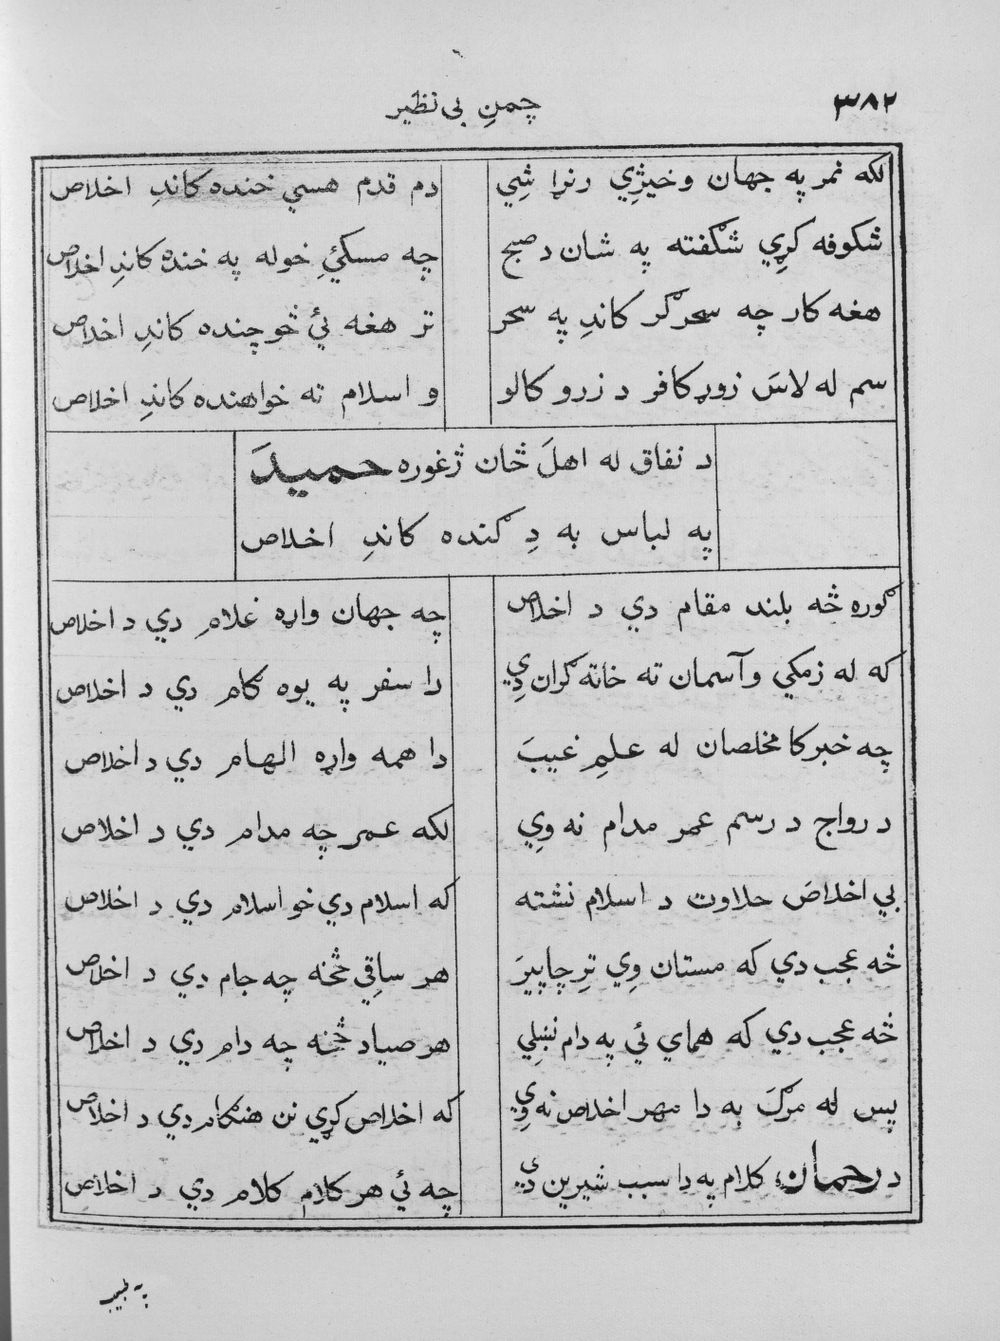 ۳۸۲
چمنِ بی نظیر
لکه نمر په جهان وخیژي رنړا شِي دم قدم هسي خنده کاندِ اخلاص
شکوفه کړِي شګفته په شان د صبح چه مسکیٔ خوله په خنده کاندِ اخلاص
هغه کار چه سحرګر کاندِ په سحر تر هغه ئ څو چنده کاندِ اخلاص
سم له لاسَ زوړ کافر د زرو کالو و اسلام ته خواهنده کاندِ اخلاص
د نفاق له اهلَ ځان ژغوره حمیدَ
په لباس به دِ ګنده کاندِ اخلاص
ګوره څه بلند مقام دي د اخلاص چه جهان واړه غلام دي د اخلاص
که له زمکي و آسمان ته خاته ګران دِي دا سفر په یوه کام دي د اخلاص
چه خبر کا مخلصان له علمِ غیبَ دا همه واړه الهام دي د اخلاص
د رواج د رسم عمر مدام نه وِي لکه عمر چه مدام دي د اخلاص
بي اخلاصَ حلاوت د اسلام نشته که اسلام دي خو اسلام دي د اخلاص
څه عجب دي که مستان وِي ترِ چاپیرَ هر ساقِي څخنه چه جام دي د اخلاص
څه عجب دي که هماي ئي په دام نښلِي هر صیاد څخنه چه دام دي د اخلاص
پس له مرګَ به دا مهر اخلاص نه وِي که اخلاص کړي نن هنګام دي د اخلاص
د رحمان کلام په دا سبب شیرین دئ چه ئي هر کلام کلام دي د اخلاص
په طبیب